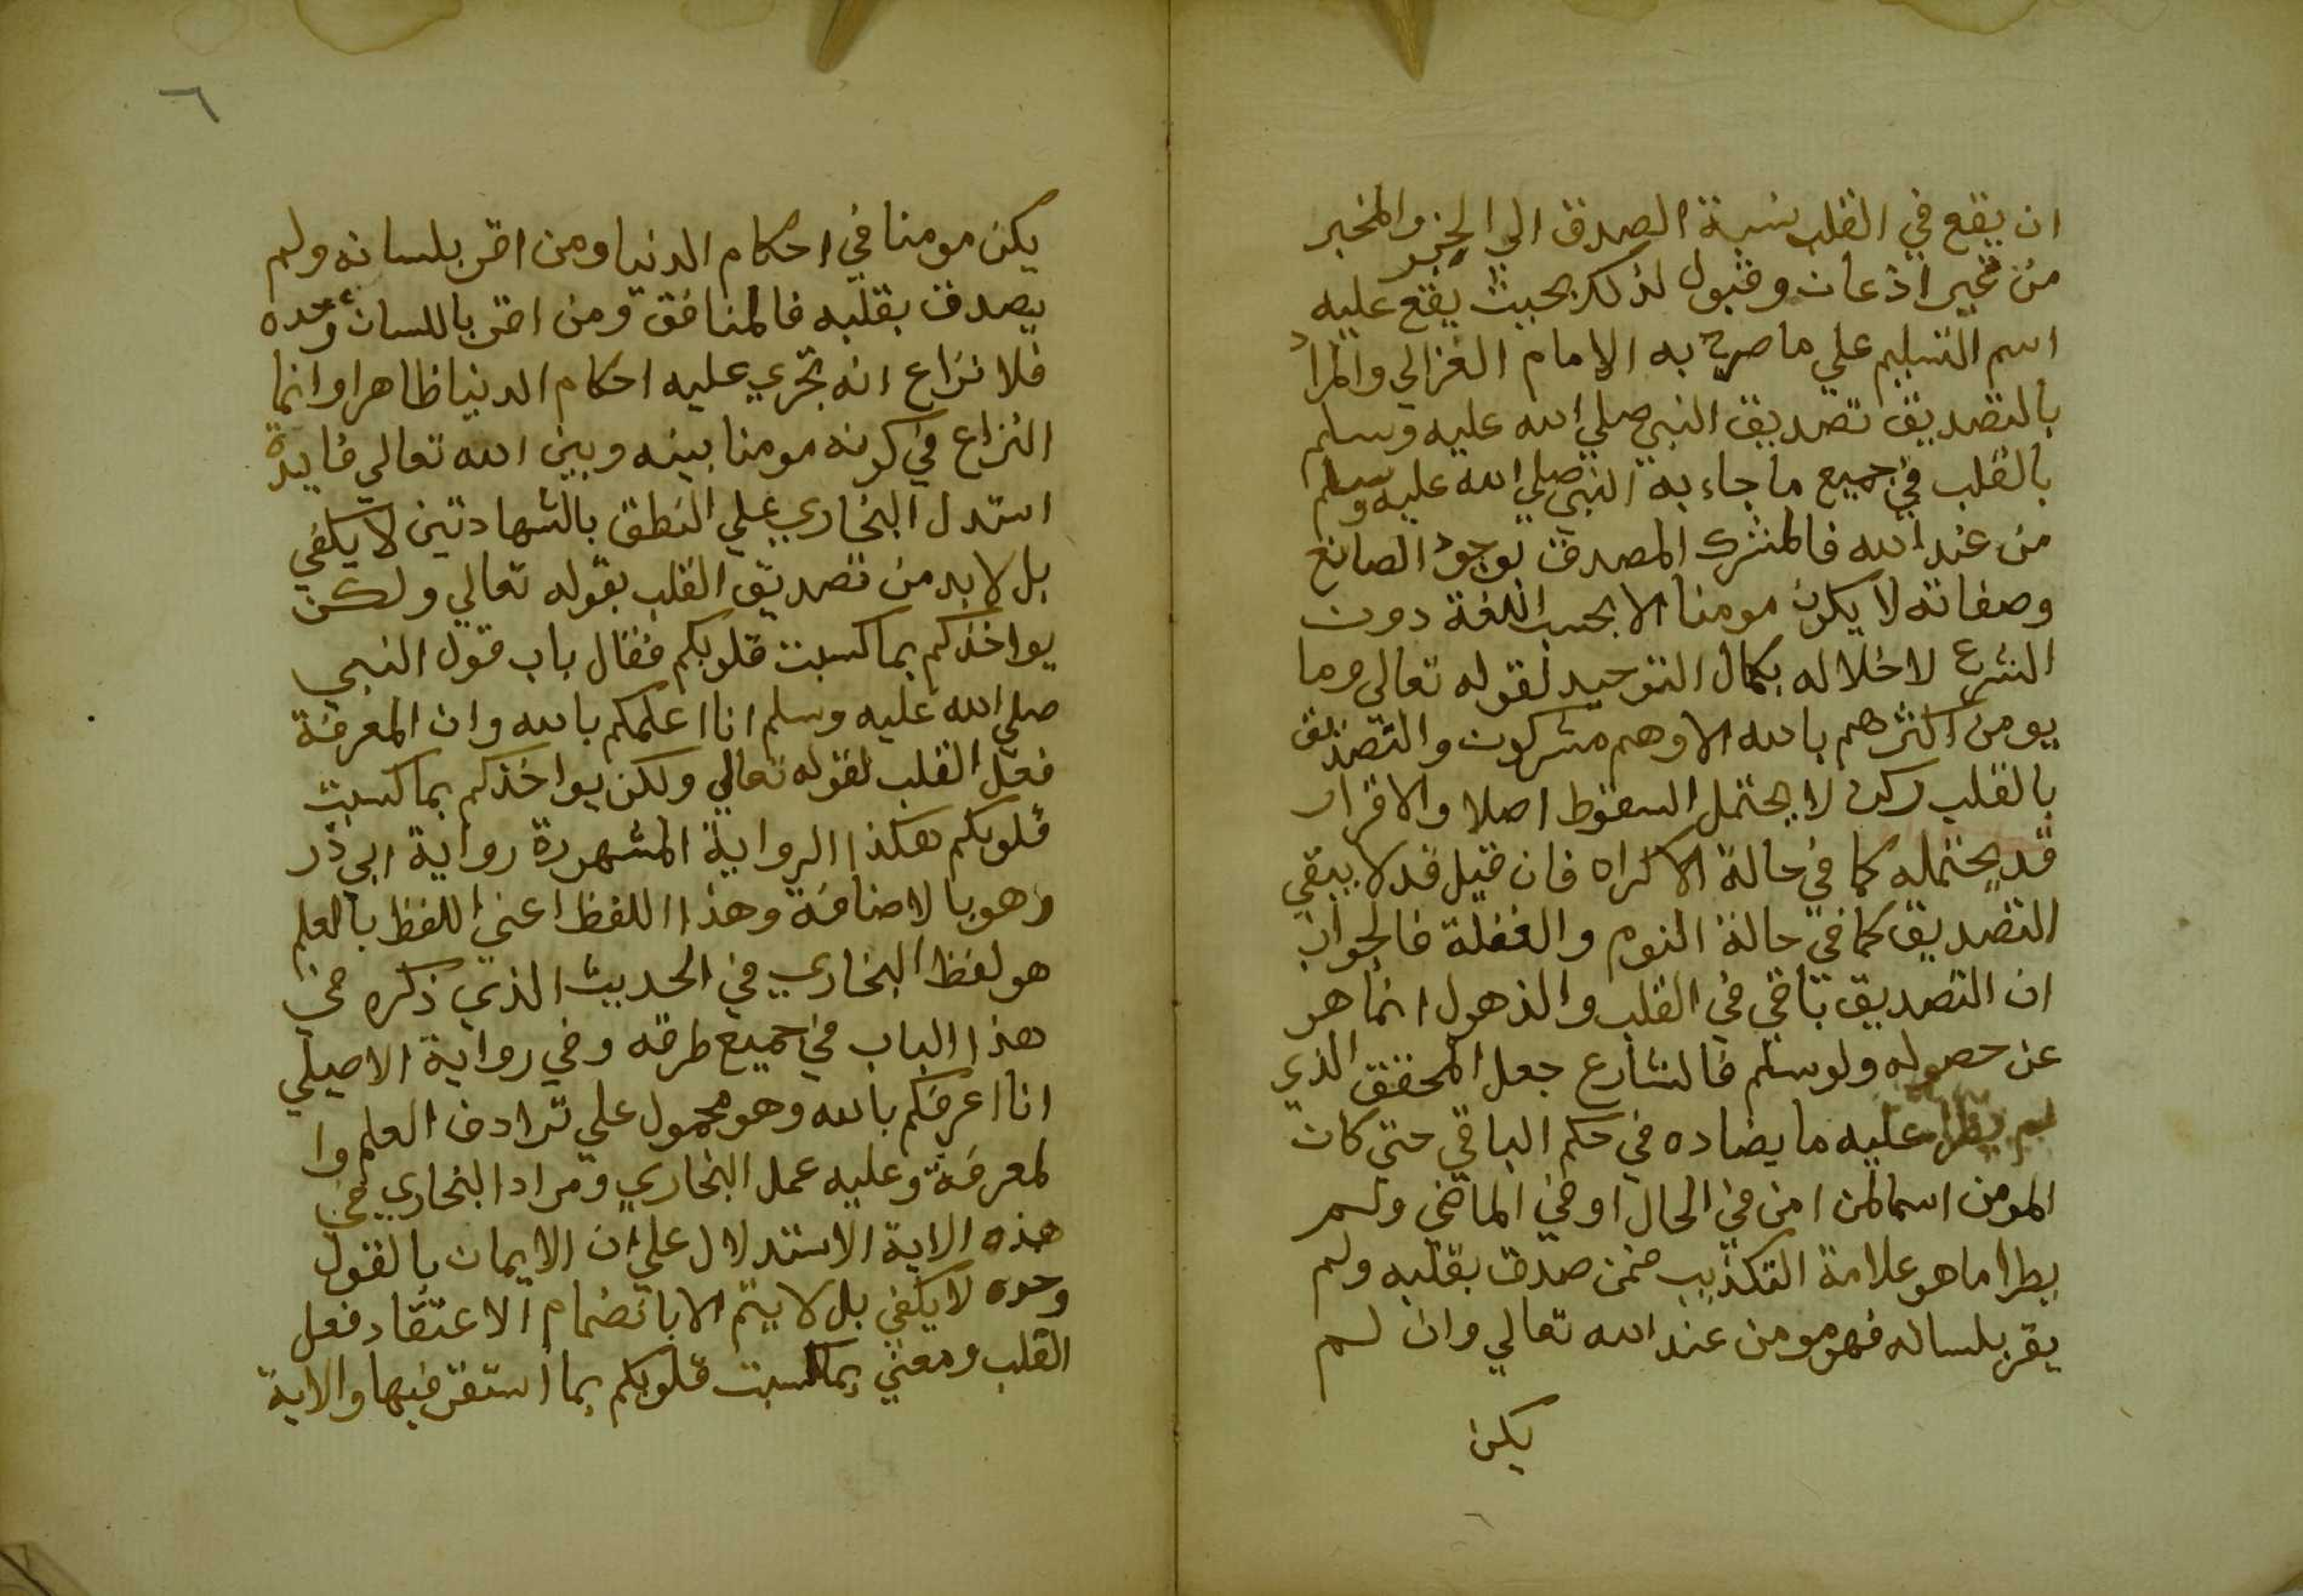 ان يقع في القلب نسبة الصدق الي الخبر والمخبر
من غير اذعان وقبول لذلك بحيث يقع عليه
اسم التسليم علي ما صرح به الامام الغزالي والمراد
بالتصديق تصديق النبي صلي الله عليه وسلم
بالقلب في جميع ما جاء به النبي صلي الله عليه وسلم
من عند الله فالمشرك المصدق بوجود الصانع
وصفاته لا يكون مومنا الا بحسب اللغة دون
الشرع لاخلاله بكمال التوحيد لقوله تعالي وما
يومن اكثرهم بالله الا وهم مشركون والتصديق
بالقلب ركن لا يحتمل السقوط اصلا والاقرار
قد يحتمله كما في حالة الاكراه فان قيل قد لا يبقي
التصديق كما في حالة النوم والغفلة فالجواب
ان التصديق باقي في القلب والذهول انما هو
عن حصوله ولو سلم فالشارع جعل المحقق الذي
لم يطرا عليه ما يضاده في حكم الباقي حتي كان
المومن اسما لمن امن في الحال او في الماضي ولم
يطرا ما هو علامة التكذيب فمن صدق بقلبه ولم
يقر بلسانه فهو مومن عند الله تعالي وان لم
يكن
٦
يكن مومنا في احكام الدنيا ومن اقر بلسانه ولم
يصدق بقلبه فالمنافق ومن اقر باللسان وحده
فلا نزاع انه تجري عليه احكام الدنيا ظاهرا وانما
النزاع في كونه مومنا بينه وبين الله تعالي فايدة
استدل البخاري علي النطق بالشهادتين لا يكفي
بل لا بد من تصديق القلب بقوله تعالي ولكن
يواخذكم بما كسبت قلوبكم فقال باب قول النبي
صلي الله عليه وسلم انا اعلمكم بالله وان المعرفة
فعل القلب لقوله تعالي ولكن يواخذكم بما كسبت
قلوبكم هكذا الرواية المشهورة رواية ابي ذر
وهو بالاضافة وهذا اللفظ اعني اللفظ بالعلم
هو لفظ البخاري في الحديث الذي ذكره في
هذا الباب في جميع طرقه وفي رواية الاصيلي
انا اعرفكم بالله وهو محمول علي ترادف العلم وا
لمعرفة وعليه عمل البخاري ومراد البخاري في
هذه الاية الاستدلال علي ان الايمان بالقول
وحده لا يكفي بل لا يتم الا بانضمام الاعتقاد فعل
القلب ومعني بما كسبت قلوبكم بما استقر فيها والاية